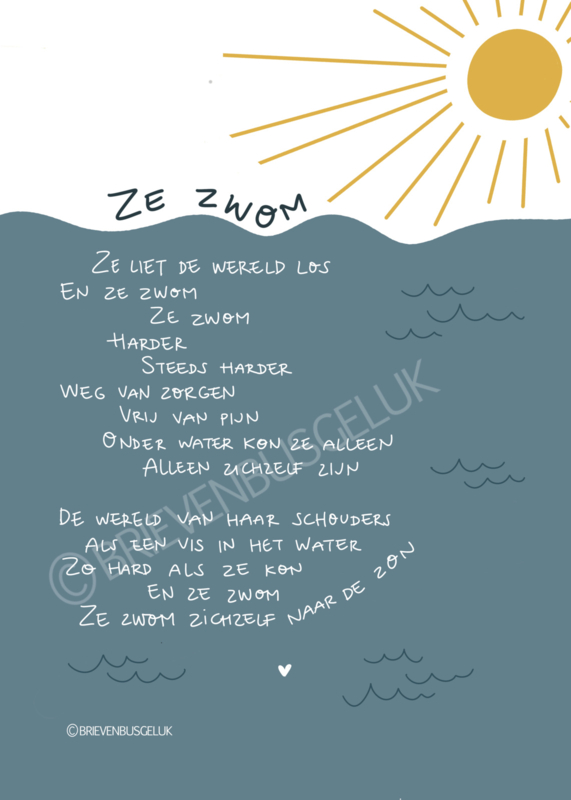 ZE ZWOM
ZE LIET DE WERELD LOS
EN ZE ZWOM
ZE ZWOM
HARDER
STEEDS HARDER
WEG VAN ZORGEN
VRIJ VAN PIJN
ONDER WATER KON ZE ALLEEN
ALLEEN ZICHZELF ZIJN
DE WERELD VAN HAAR SCHOUDERS
ALS EEN VIS IN HET WATER
ZO HARD ALS ZE KON
EN ZE ZWOM
ZE ZWOM ZICHZELF NAAR DE ZON
©BRIEVENBUSGELUK
©BRIEVENBUSGELUK